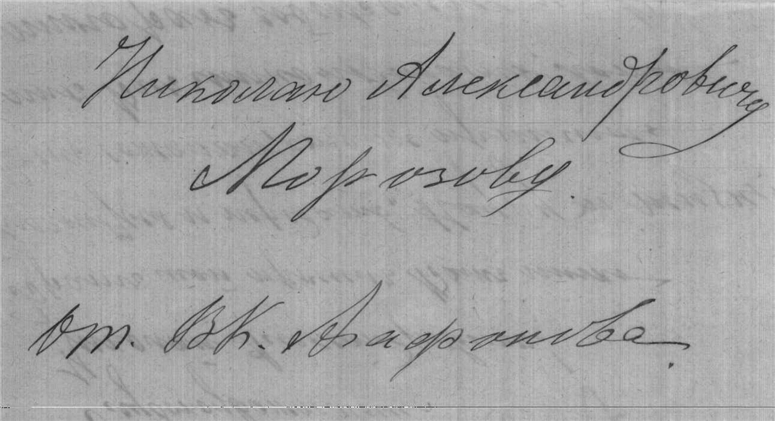 Николаю Александровичу
Морозову.
От. В.К. Агафонова.